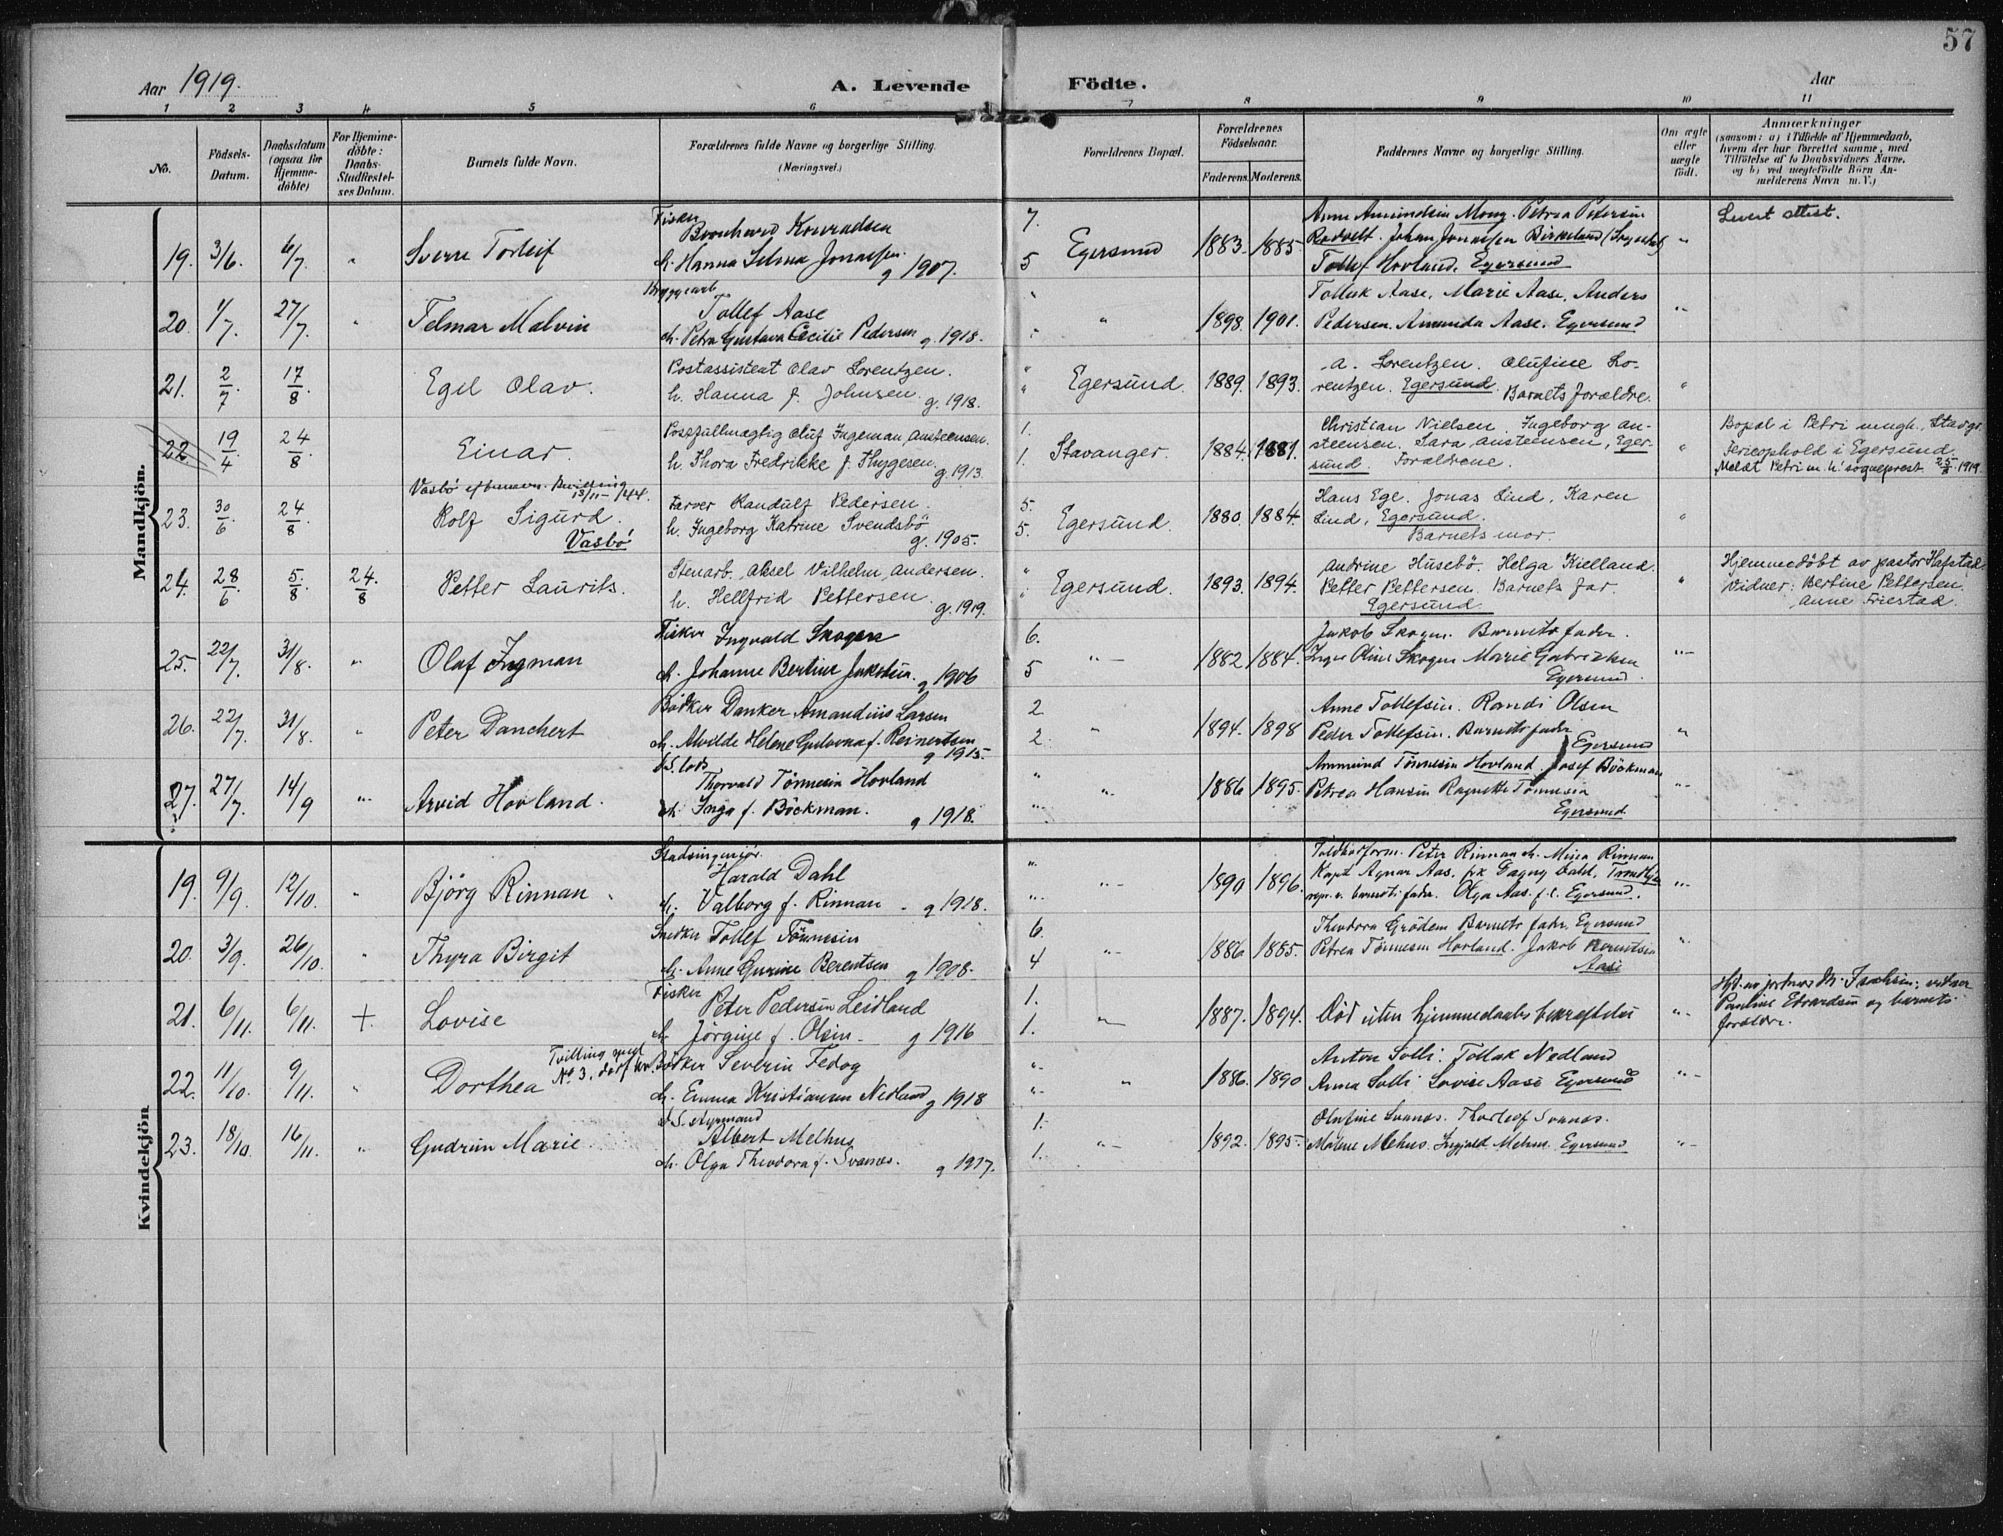 57
Aar 1919.
A. Levende Födte.
Aar
1 2 3 4 5 6 7 8 9 10 11
No.
Födsels-Datum.
Daabsdatum (ogsaa for Hjemmedöbte)
For Hjemmedöbte: Daabs-Stadfæstelses Datum.
Barnets fulde Navn.
Forældrenes fulde Navne og borgerlige Stilling.
(Næringsvei.)
Forældrenes Bopæl.
Forældrenes Födselsaar.
Faderens. Moderens.
Faddernes Navne og borgerlige Stilling.
Om ægte eller uægte födt.
Anmærkninger
(saasom: a) i Tilfælde af Hjemmedaab,
hvem der har forrettet samme, med
Tilföielse af to Daabsvidners Navne.
og b) ved uægtefödte Börn An-
melderens Navn m. V.)
Mandkjön.
19. 3/6. 6/7. " Sverre Torleif
Fisker
Bernhard Konradsen
h. Hanna Selma Jonassen. g 1907.
7. 5 Egersund 1883. 1885.
Anne Amundsen Mong. Petrea Petersen
Rodvelt. Johan Jonassen Birkeland
Tollef Hovland. Egersund
" Levert attest.
20. 1/7. 27/7. " Telmar Malvin
Bryggearb
Tollef Aase
h. Petra Gustava Cecilie Pedersen g. 1918.
" 1898. 1901.
Tollak Aase. Marie Aase. Anders
Pedersen. Amanda Aase. Egersund
"
21. 2/7 17/8 Egil Olav.
Postassistent Olav Lorentzen.
h. Hanna f. Johnsen. g. 1918.
" Egersund. 1889. 1893.
A. Lorentzen. Olufine Lo-
rentzen. Egersund. Barnets forældre.
"
22. 19/4. 24/8 Einar.
Postfullmægtig Oluf Ingeman Austeensen.
h. Thora Fredrikke f. Thygesen. g. 1913.
1. 1. Stavanger. 1884. 1881.
Christian Nielsen. Ingeborg Au-
steensen. Sara Austeensen, Eger-
sund. Forældrene.
" Bopæl i Petri mngh. Stavgr.
Ferieophold i Egersund.
Meldt Petri m. h. sogneprest 25/8 1919.
23. 30/6. 24/8
15/11-/44.
Rolf Sigurd.
Vasbö
Farver Randulf Pedersen.
h. Ingeborg Katrine Svendsbö g. 1905.
5. 5. Egersund. 1880. 1884.
Hans Ege. Jonas Lind. Karen
Lind, Egersund.
Barnets mor.
"
24. 28/6 5/8 24/8 Petter Laurits.
Stenarb. Aksel Vilhelm Andersen.
h. Hellfrid Pettersen. g. 1919.
" Egersund. 1893. 1894.
Andrine Husebö. Helga Kielland.
Petter Pettersen. Barnets far.
Egersund
" Hjemmedöbt av pastor Hafstad
Vidner: Bertine Pettersen,
Anne Friestad.
25. 22/7 31/8. " Olaf Ingman
Fisker Ingvald Skogen
h. Johanne Bertine Jakobsen. g 1906
6. 5 " 1882. 1884.
Jakob Skogen. Barnets fader.
Inger Oline Skogen Marie Gabrielsen
Egersund.
"
26. 22/7. 31/8. " Peter Danchert
Bödker Danker Amandus Larsen
h. Alvilde Helene Gulovna f. Reinertsen g 1915.
2 2. " 1894. 1898
Anne Tollefsen. Randi Olsen
Peder Tollefsen. Barnets fader
Egersund
"
27. 27/7. 14/9 " Arvid Hovland.
Thorvald Tönnesen Hovland
h. Inga f. Böckman. g 1918.
" 1886 1895.
Ammund Tönnesen Hovland. Josef Böckman
Petrea Hansen Ragnette Tönnesen
Egersund
"
Kvindekjön
19. 9/9. 12/10. " Björg Rinnan
Stadsingeniör.
Harald Dahl
h. Valborg f. Rinnan. g 1918.
" 1890 1896.
Peter Rinnan h. Mina Rinnan
Kapt Agnar Aas. frk Dagny Dahl, Trondhjem
barnets fader. Olga Aas. f. l. Egersund.
"
20. 3/9. 26/10. " Thyra Birgit
Snedker Tollef Tönnesen
h. Anne Gurine Berentsen g 1908.
6. 4 " 1886 1885.
Theodora Grödem Barnets fader, Egersund
Petrea Tönnesen Hovland. Jakob Berentsen
Aase
"
21. 6/11. 6/11. + Lovise
Fisker
Peter Pedersen Leidland
h. Jörgine f. Olsen. g 1916
1. 1. " 1887. 1894.
Död uten hjemmedaabs bekræftelse
"
Pauline Edvardsen og barnets
forældre.
22. 11/10. 9/11. " Dorthea
Tvilling med
No 3. dödf.
Bödker Severin Fedog
h. Emma Kristiansen Nedland g 1918
" 1886. 1890
Anton Solli. Tollak Nedland
Anna Solli Lovise Aase Egersund
"
23. 18/10. 16/11. " Gudrun Marie
Albert Melhus
h. Olga Theodora f. Svanes. g 1917.
1. 1. " 1892. 1895.
Olufine Svanes. Thorleif Svanes.
Malene Mehus. Ingvald Mehus. Egersund
"